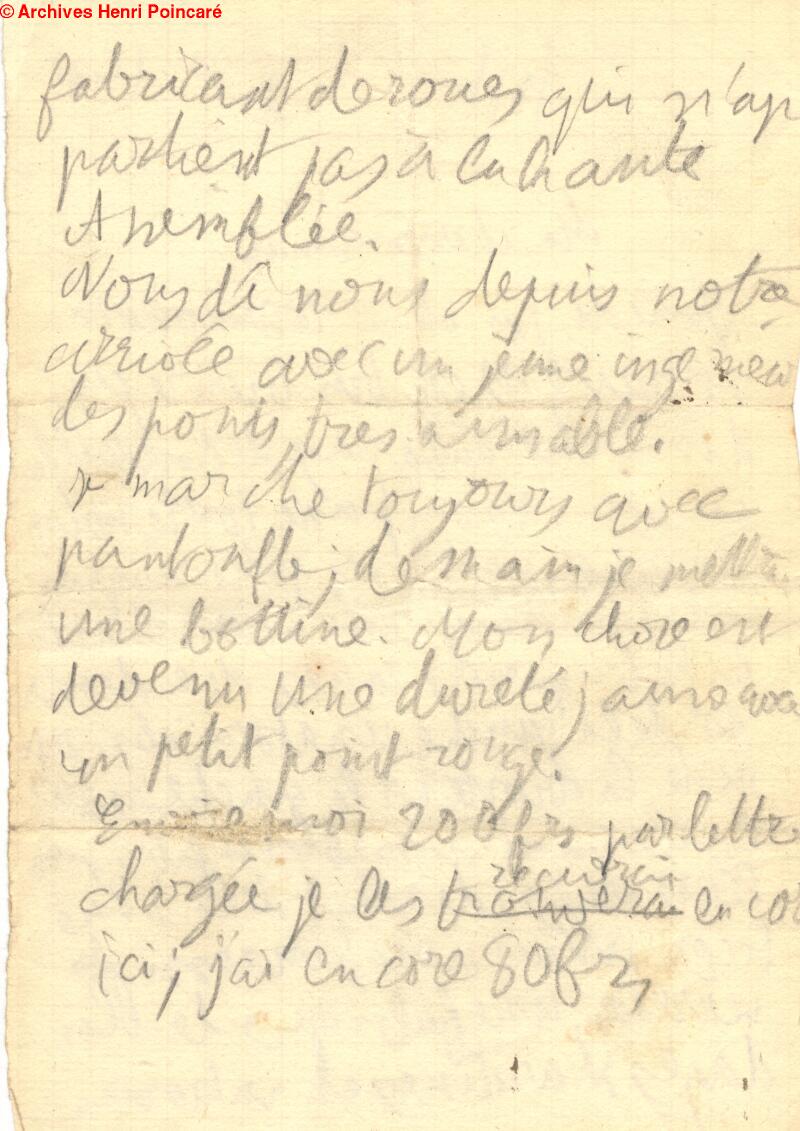 © Archives Henri Poincaré
fabricant de roues qui n'ap
partient pas à la haute
Assemblée.
Nous dî nous depuis notre
arrivée avec un jeune ingénieur
des ponts, très aimable.
Je marche toujours avec
pantoufle; demain je mettrai
une bottine. Mon chose est
devenu une dureté; jaune avec
un petit point rouge.
Envoie moi 200 frs par lettre
chargée je les
recevrai
trouverai encore
ici; j'ai encore 80 frs,